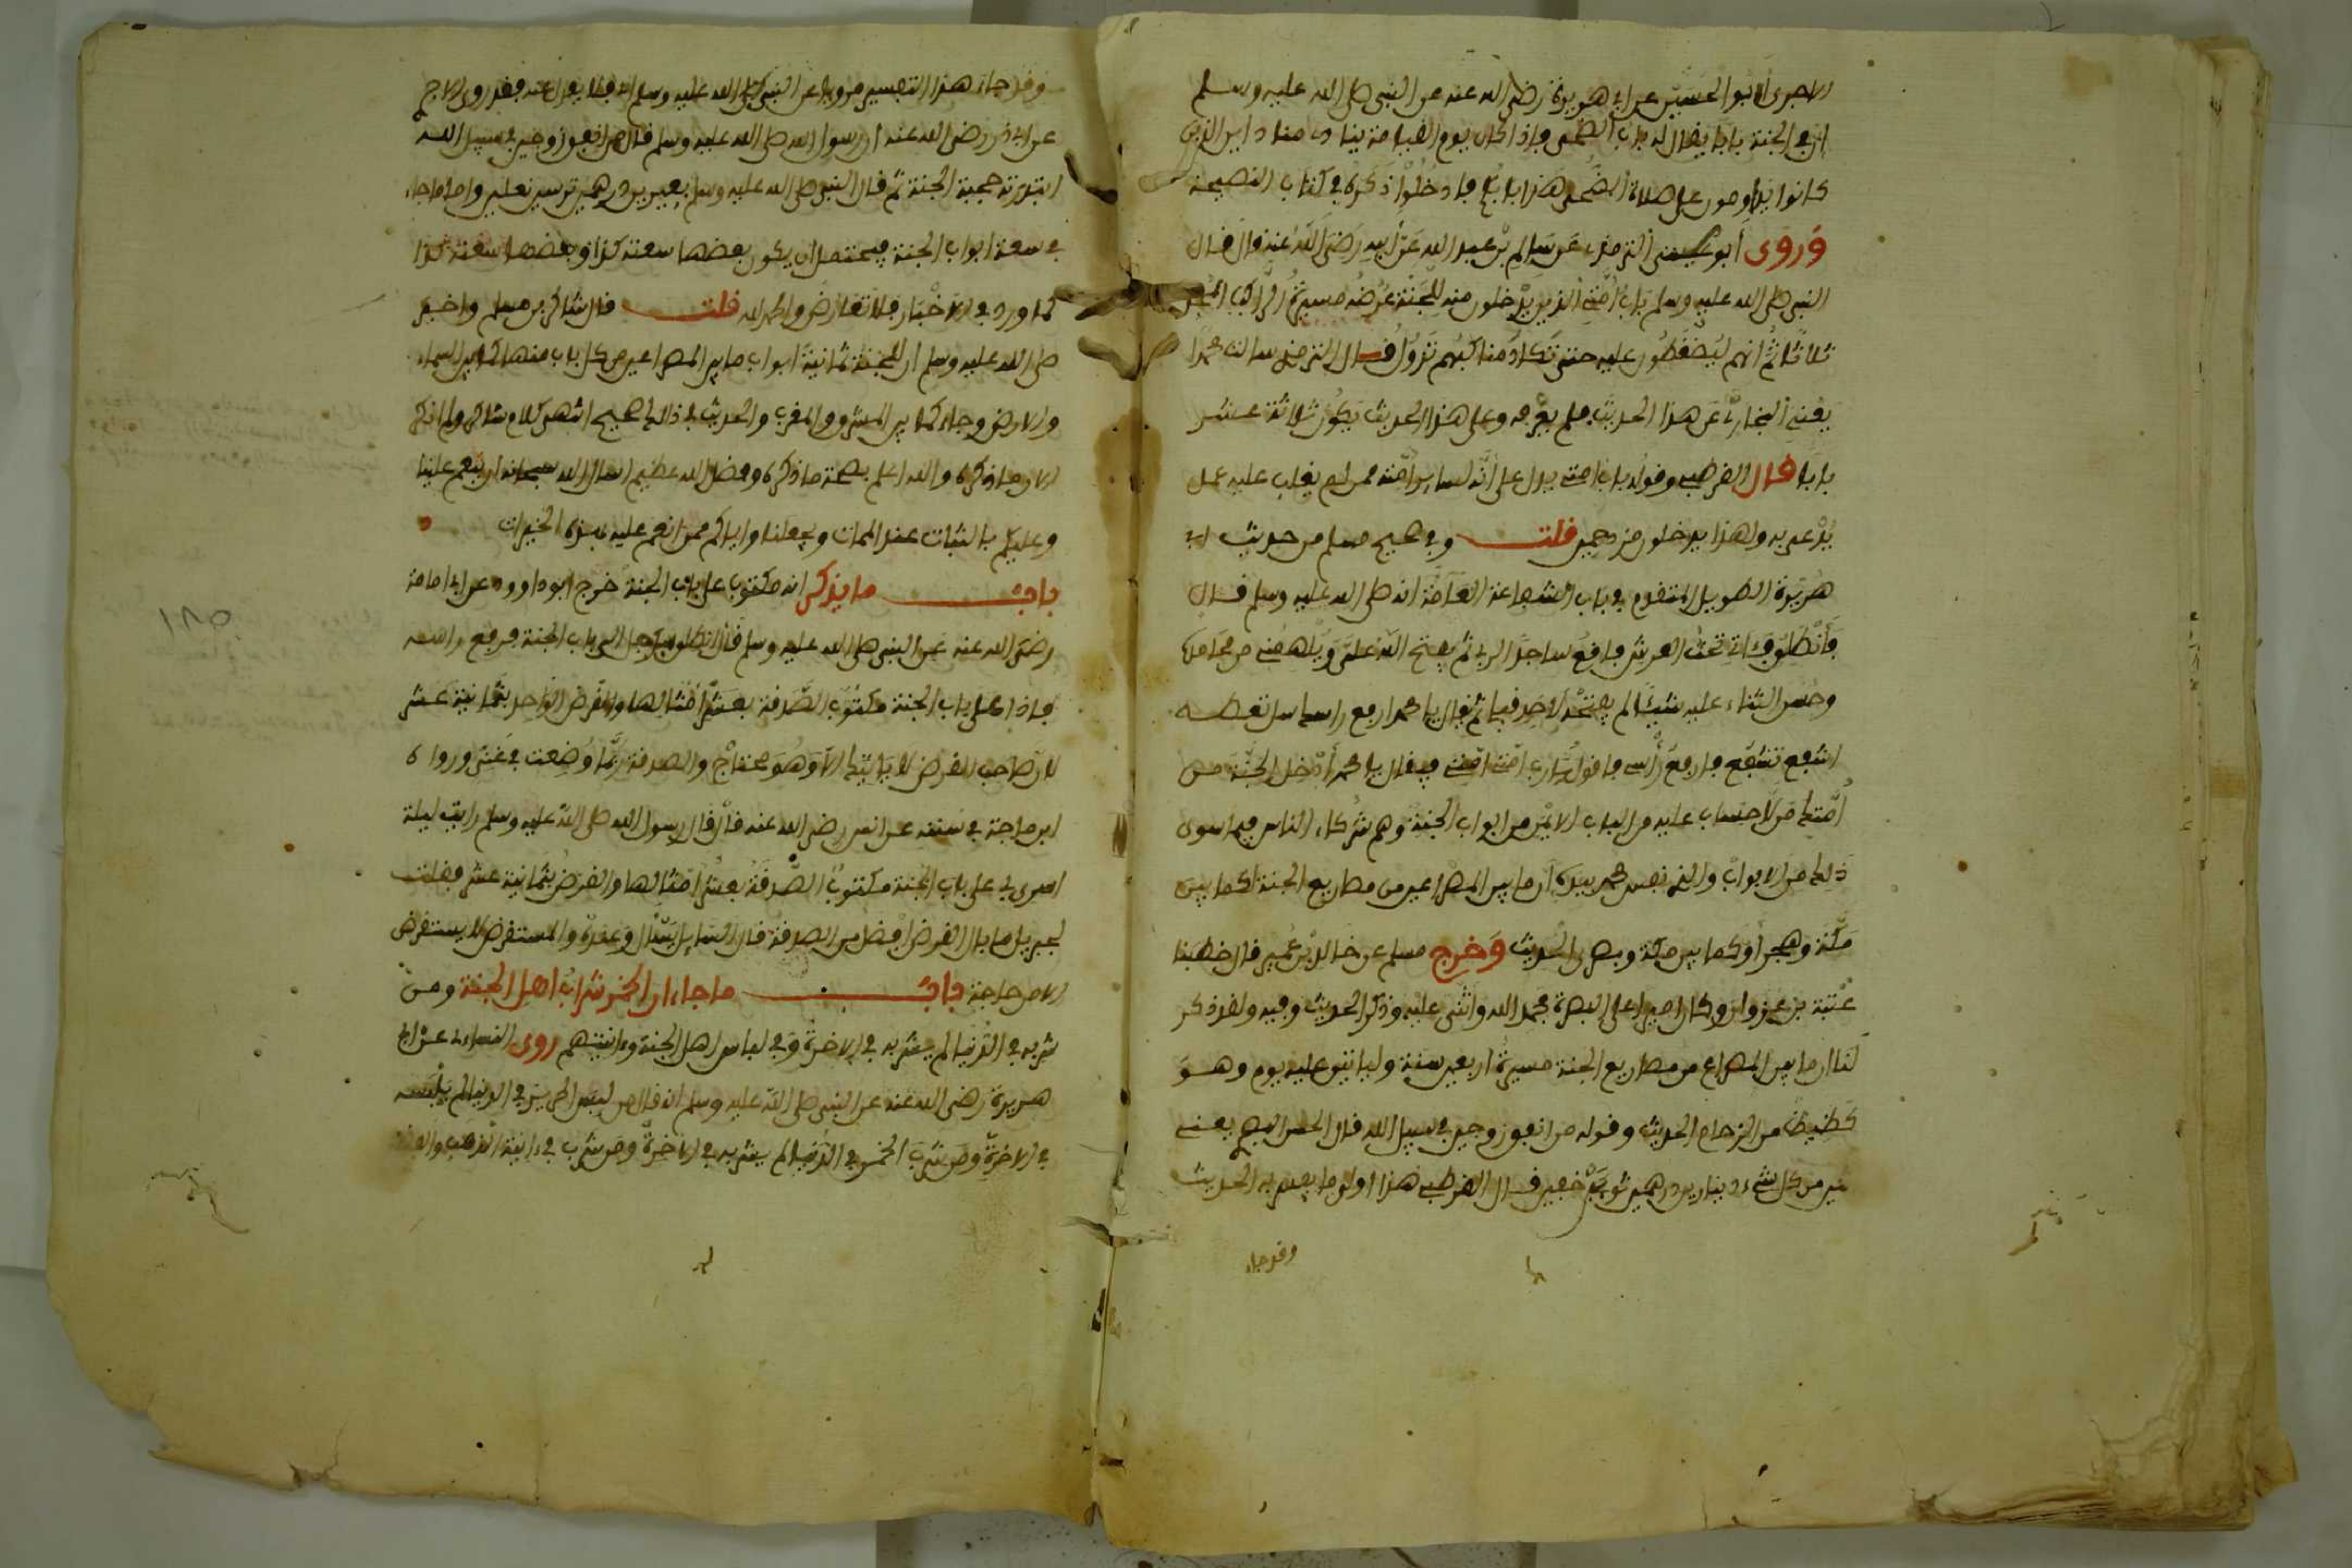 الاجرى ابو الحسين عن ابى هريرة رضى الله عنه عن النبى صلى الله عليه وسلم
ان فى الجنة بابا يقال له باب الضحى فاذا كان يوم القيامة ينادى مناد اين الذين
كانوا يداومون على صلاة الضحى هذا بابكم فادخلوا ذكره فى كتاب النصيحة
وَرَوَى أبو عيسى الترمذى عن سالم بن عبد الله عن أبيه رضى الله عنه قال قال
النبى صلى الله عليه وسلم باب أمتى الذين يدخلون منه للجنة عرضه مسيرة الراكب المجد
ثلاثا ثم انهم ليضغطون عليه حتى تكاد مناكبهم تزول قال الترمذى سالت محمدا
يعنى البخارى عن هذا الحديث فلم يعرفه وعلى هذا الحديث يكون ثلاثة عشر
بابا قال القرطبى وقوله باب امتى يدل على أنه لساير أمته ممن لم يغلب عليه عمل
يدعى به ولهذا يدخلون مزدحمين قلت وفى صحيح مسلم من حديث ابى
هريرة الطويل المتقدم فى باب الشفاعة العامة انه صلى الله عليه وسلم قال
فأنطلق فئاتى تحت العرش فاقع ساجدا لربى ثم يفتح الله على ويلهمنى من محامده
وحسن الثناء عليه شيئا لم يفتحه لاحد قبلى ثم يقال يا محمد ارفع راسك سل تعطه
اشفع تشفع فارفع رأسى فاقول يارب امتى امتى فيقال يا محمد أدخل الجنة من
أمتك من لا حساب عليه من الباب الايمن من ابواب الجنة وهم شركاء الناس فيما سوى
ذلك من الابواب والذى نفس محمد بيده ان ما بين المصراعين من مصاريع الجنة لكما بين
مكة وهجر أو كما بين مكة وبصرى الحديث وَخرج مسلم عن خالد بن عمير قال خطبنا
عتبة بن غزوان وكان اميرا على البصرة فحمد الله واثنى عليه وذكر الحديث وفيه ولقد ذكر
لنا ان ما بين المصراعين من مصاريع الجنة مسيرة اربعين سنة ولياتين عليه يوم وهو
كظيظ من الزحام الحديث وقوله من انفق زوجين فى سبيل الله قال الحسن البصرى يعنى
اثنين من كل شىء دينارين درهمين ثوبين خفين قال القرطبى هذا اولى ما يفسر به الحديث
وقد جاء
وقد جاء هذا التفسير مرويا عن النبى صلى الله عليه وسلم فلا يعدل عنه فقد روى الاجرى
عن ابى ذر رضى الله عنه ان رسول الله صلى الله عليه وسلم قال من انفق زوجين فى سبيل الله
ابتدرته حجبة الجنة ثم قال النبى صلى الله عليه وسلم بعيرين درهمين قوسين نعلين واما ما جاء
فى سعة ابواب الجنة فيحتمل ان يكون بعضها سعته كذا وبعضها سعته كذا
كما ورد فى الاخبار فلا تعارض والحمد لله قلت قال شاكر بن مسلم واخبر
صلى الله عليه وسلم ان للجنة ثمانية ابواب ما بين المصراعين من كل باب منها كما بين السماء
والارض وجاء كما بين المشرق والمغرب والحديث فى ذلك صحيح انتهى كلام شاكر ولم اذكر
الا ما ذكره والله اعلم بصحة ما ذكره وفضل الله عظيم اسال الله سبحانه ان ينعم علينا
وعليكم بالثبات عند الممات ويجعلنا واياكم ممن انعم عليه بهذه الخيرات
باب ما يذكر انه مكتوب على باب الجنة خرج ابو داوود عن ابى امامة
رضى الله عنه عن النبى صلى الله عليه وسلم قال انطلق برجل الى باب الجنة فرفع راسه
فاذا على باب الجنة مكتوب الصدقة بعشر أمثالها والقرض الواحد بثمانية عشر
لان صاحب القرض لا ياتيك الا وهو محتاج والصدقة ربما وضعت فى غنى ورواه
ابن ماجة فى سننه عن انس رضى الله عنه قال قال رسول الله صلى الله عليه وسلم رايت ليلة
اسرى بى على باب الجنة مكتوب الصدقة بعشر أمثالها والقرض بثمانية عشر فقلت
لجبريل ما بال القرض افضل من الصدقة قال السايل يسئل وعنده والمستقرض لا يستقرض
الا من حاجة باب ما جاء ان الخمر شراب اهل الجنة ومن
شربه فى الدنيا لم يشربه فى الاخرة وفى لباس اهل الجنة وءانيتهم روى النساءى عن ابى
هريرة رضى الله عنه عن النبى صلى الله عليه وسلم انه قال من لبس الحرير فى الدنيا لم يلبسه
فى الاخرة ومن شرب الخمر فى الدنيا لم يشربه فى الاخرة ومن شرب فى ءانية الذهب والفضة